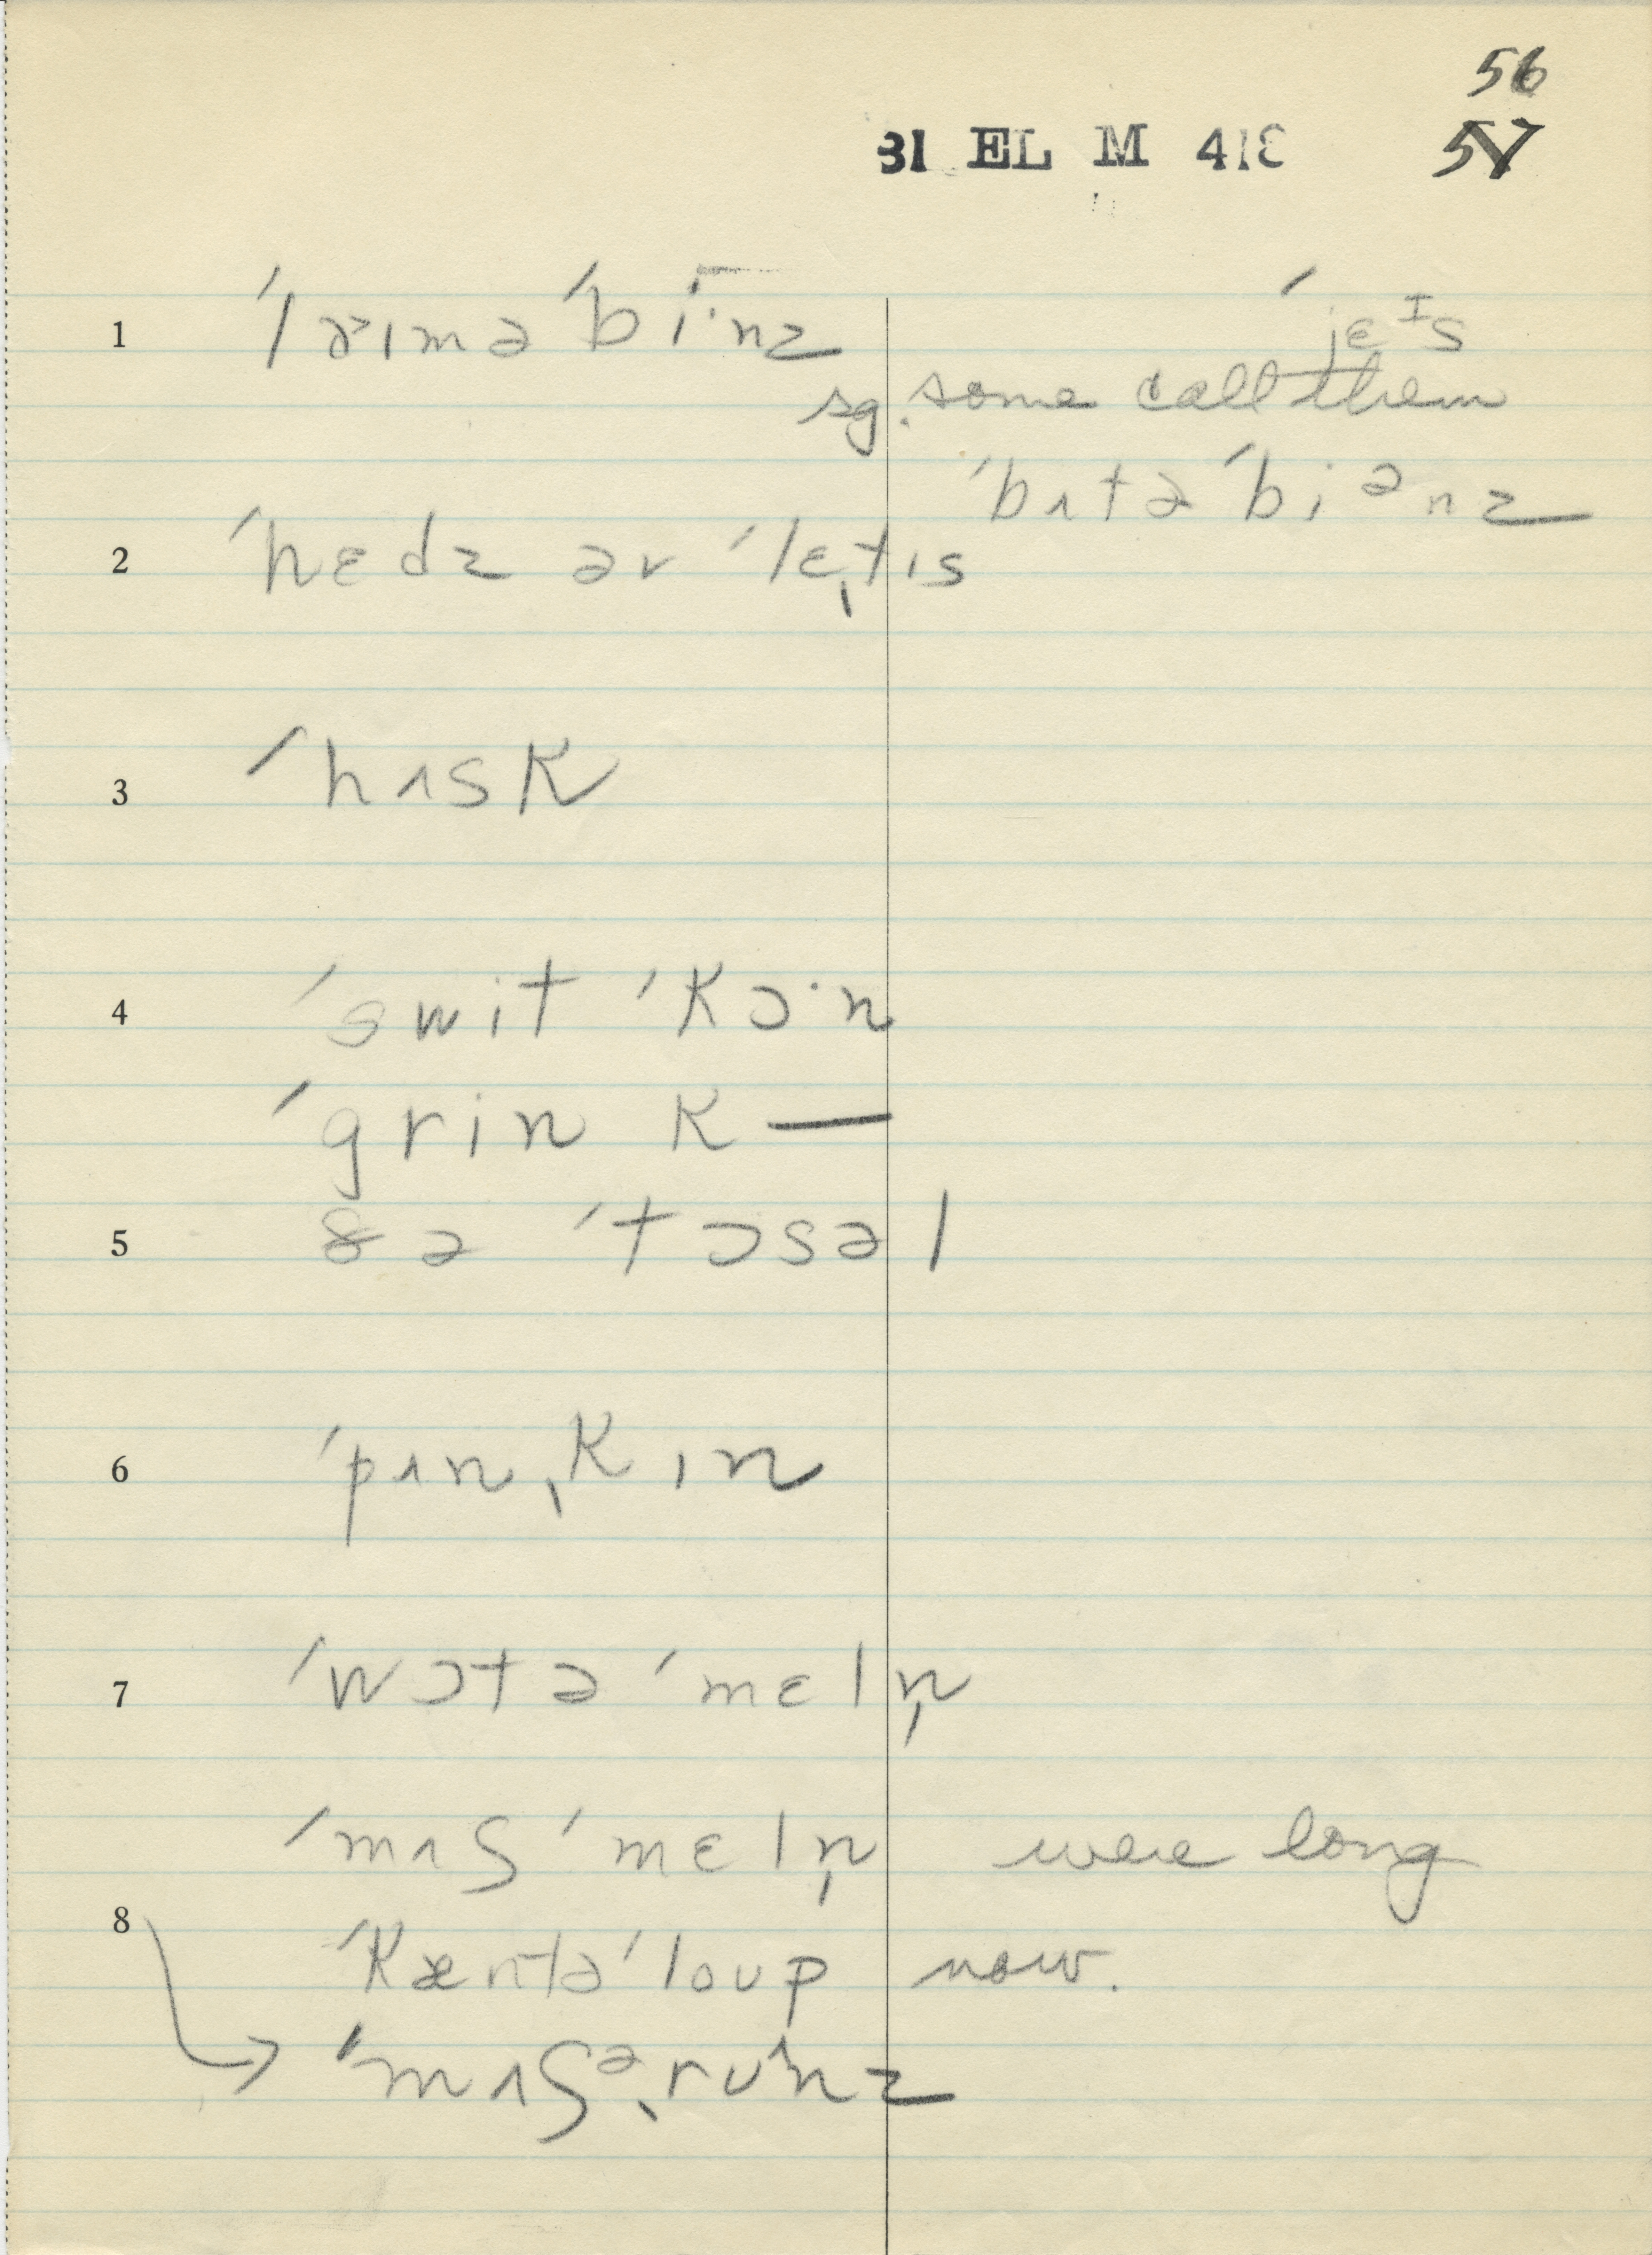 56
31 EL M 418 57
1 ˈlaɪməˈbi·nz ˈjɛᴵs
sg. some call them
ˈbʌtəˈbiᵊnz
2 ˈhɛdz əv ˈlɛˌtɪs
3 ˈhʌsk
4 ˈswit ˈkɔ·n
ˈgrin k —
5 ðə ˈtɔsəl
6 ˈpʌnˌkɪn
7 ˈwɔtə ˈmɛln̩
ˈmʌʃ ˈmɛln̩ were long
8 ˈkæntəˈloup now.
→ ˈmʌʃᵊˌruᶺnz